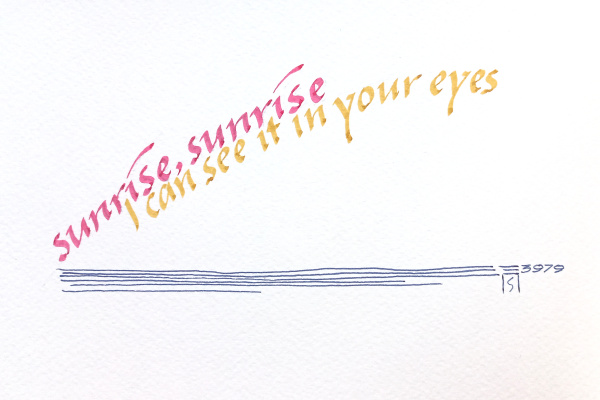 sunrise, sunrise
I can see it in your eyes
3979